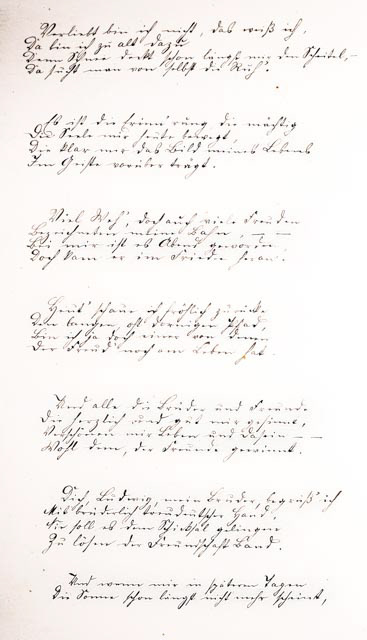 Verliebt bin ich nicht, das weiß ich,
Da bin ich zu alt dazu
Denn Schnee deckt schon längst mir den Scheitel, –
Da sucht man von selbst die Ruh'.
Es ist die Erinn'rung die mächtig
Das Seele mir heute bewegt,
Die klar mir das Bild meines Lebens
Im Geiste vorüber trägt.
Viel Weh', doch auch viele Freuden
Bezeichneten meine Bahn, – –
Bei mir ist es Abend geworden,
Doch kam er im Frieden heran.
Heut' schaue ich fröhlich zurücke
Den langen, oft dornigen Pfad,
Bin ich ja doch einer von denen
Der Freud' noch am Leben hat.
Und alle die Brüder und Freunde
Die herzlich und gut mir gesinnt,
Verschönen mir Leben und Dasein – –
Wohl dem, der Freunde gewinnt.
Dich, Ludwig, mein Bruder, begrüß' ich
Mit brüderlich treudeutscher Hand,
Nie soll es dem Schicksal gelingen
Zu lösen der Freundschaft Band.
Und wenn mir in spätern Tagen
Die Sonne schon längst nicht mehr scheint,